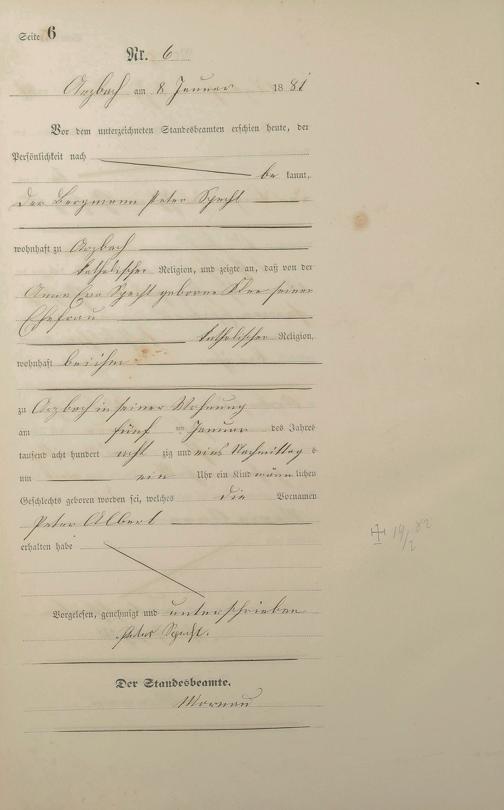 Seite 6
Nr. 6
Arzbach am 8 Januar 1881
Vor dem unterzeichneten Standesbeamten erschien heute, der
Persönlichkeit nach
be kannt,
der Bergmann Peter Specht
wohnhaft zu Arzbach
katholischer Religion, und zeigte an, daß von der
Anna Eva Specht geborene Klee seiner
Ehefrau
katholischer Religion,
wohnhaft bei ihm
zu Arzbach in seiner Wohnung
am fünf ten Januar des Jahres
tausend acht hundert acht zig und eins Nachmittag s
um ein Uhr ein Kind männ lichen
Geschlechts geboren worden sei, welches die Vornamen
Peter Albert
erhalten habe
Vorgelesen, genehmigt und unterschrieben
Peter Specht.
Der Standesbeamte.
19/2 82